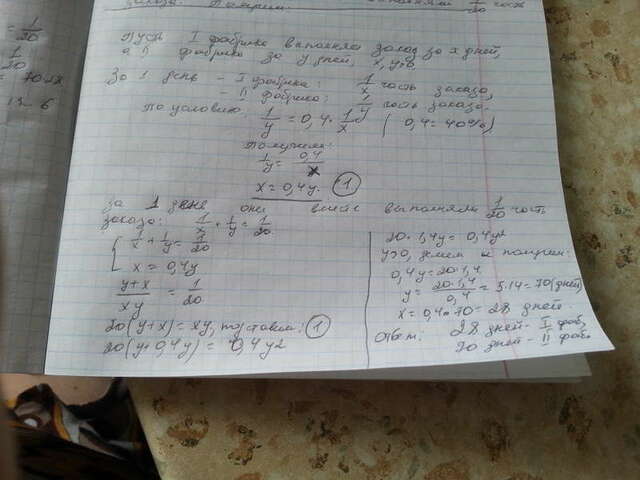 заказа. Получим:
1/20 часть
= 1/20
1/20
Пусть I фабрика выполняла заказ за x дней,
а II фабрика за y дней, x, y>0
За 1 день - I фабрика: 1/x часть заказа,
- II фабрика: 1/y часть заказа.
По условию: 1/y = 0,4 · 1/x (0,4 = 40%)
Получаем:
1/y = 0,4/x
x = 0,4y. 1
За 1 день они вместе выполняли 1/20 часть
заказа: 1/x + 1/y = 1/20
1/x + 1/y = 1/20
x = 0,4y
y+x/xy = 1/20
20(y+x) = xy, подставим: 1
20(y+0,4y) = 0,4y²
20·1,4y = 0,4y²
y>0, делим и получим:
0,4y = 20·1,4
y = 20·1,4/0,4 = 5·14 = 70 (дней)
x = 0,4·70 = 28 дней.
Ответ: 28 дней - I фаб,
70 дней - II фаб.